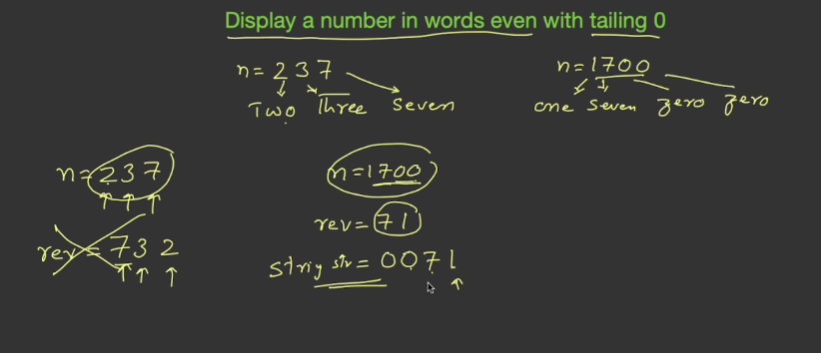 Display a number in words even with tailing 0
n = 2 3 7
Two Three Seven
n = 1700
one seven zero zero
n = 237
rev = 732
n = 1700
rev = 71
string str = 0071